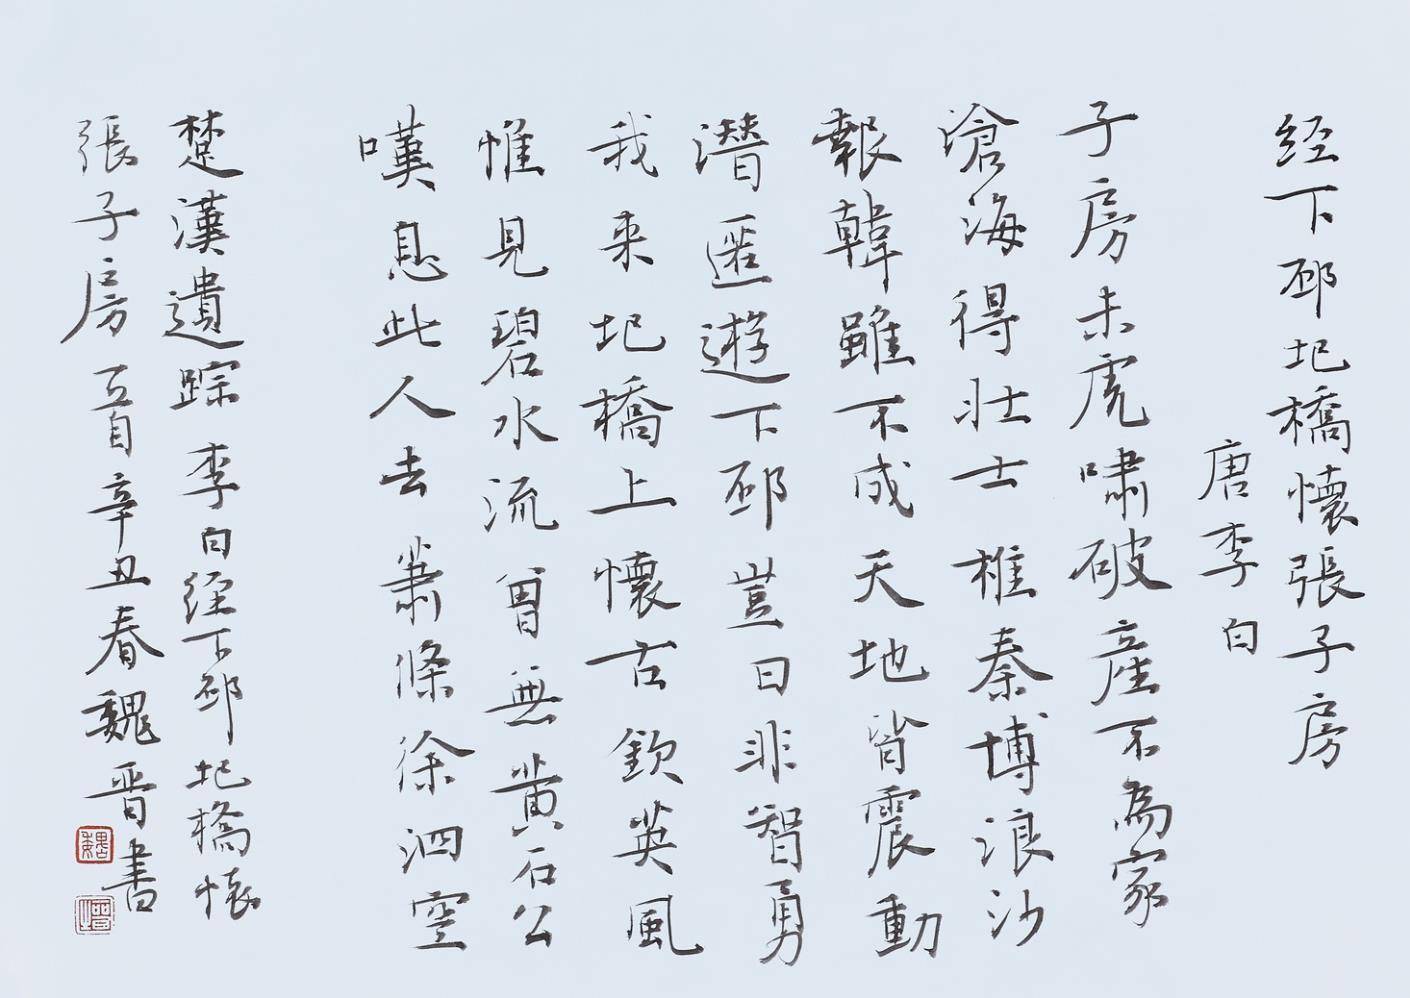 经下邳圯橋懷張子房
唐李白
子房未虎嘯破産不為家
滄海得壯士椎秦博浪沙
報韓雖不成天地皆震動
潛匿遊下邳豈曰非智勇
我来圯橋上懷古欽英風
惟見碧水流曾無黄石公
嘆息此人去蕭條徐泗空
楚漢遺踪李白經下邳圯橋懷
張子房一首辛丑春魏晋書
魏
晋